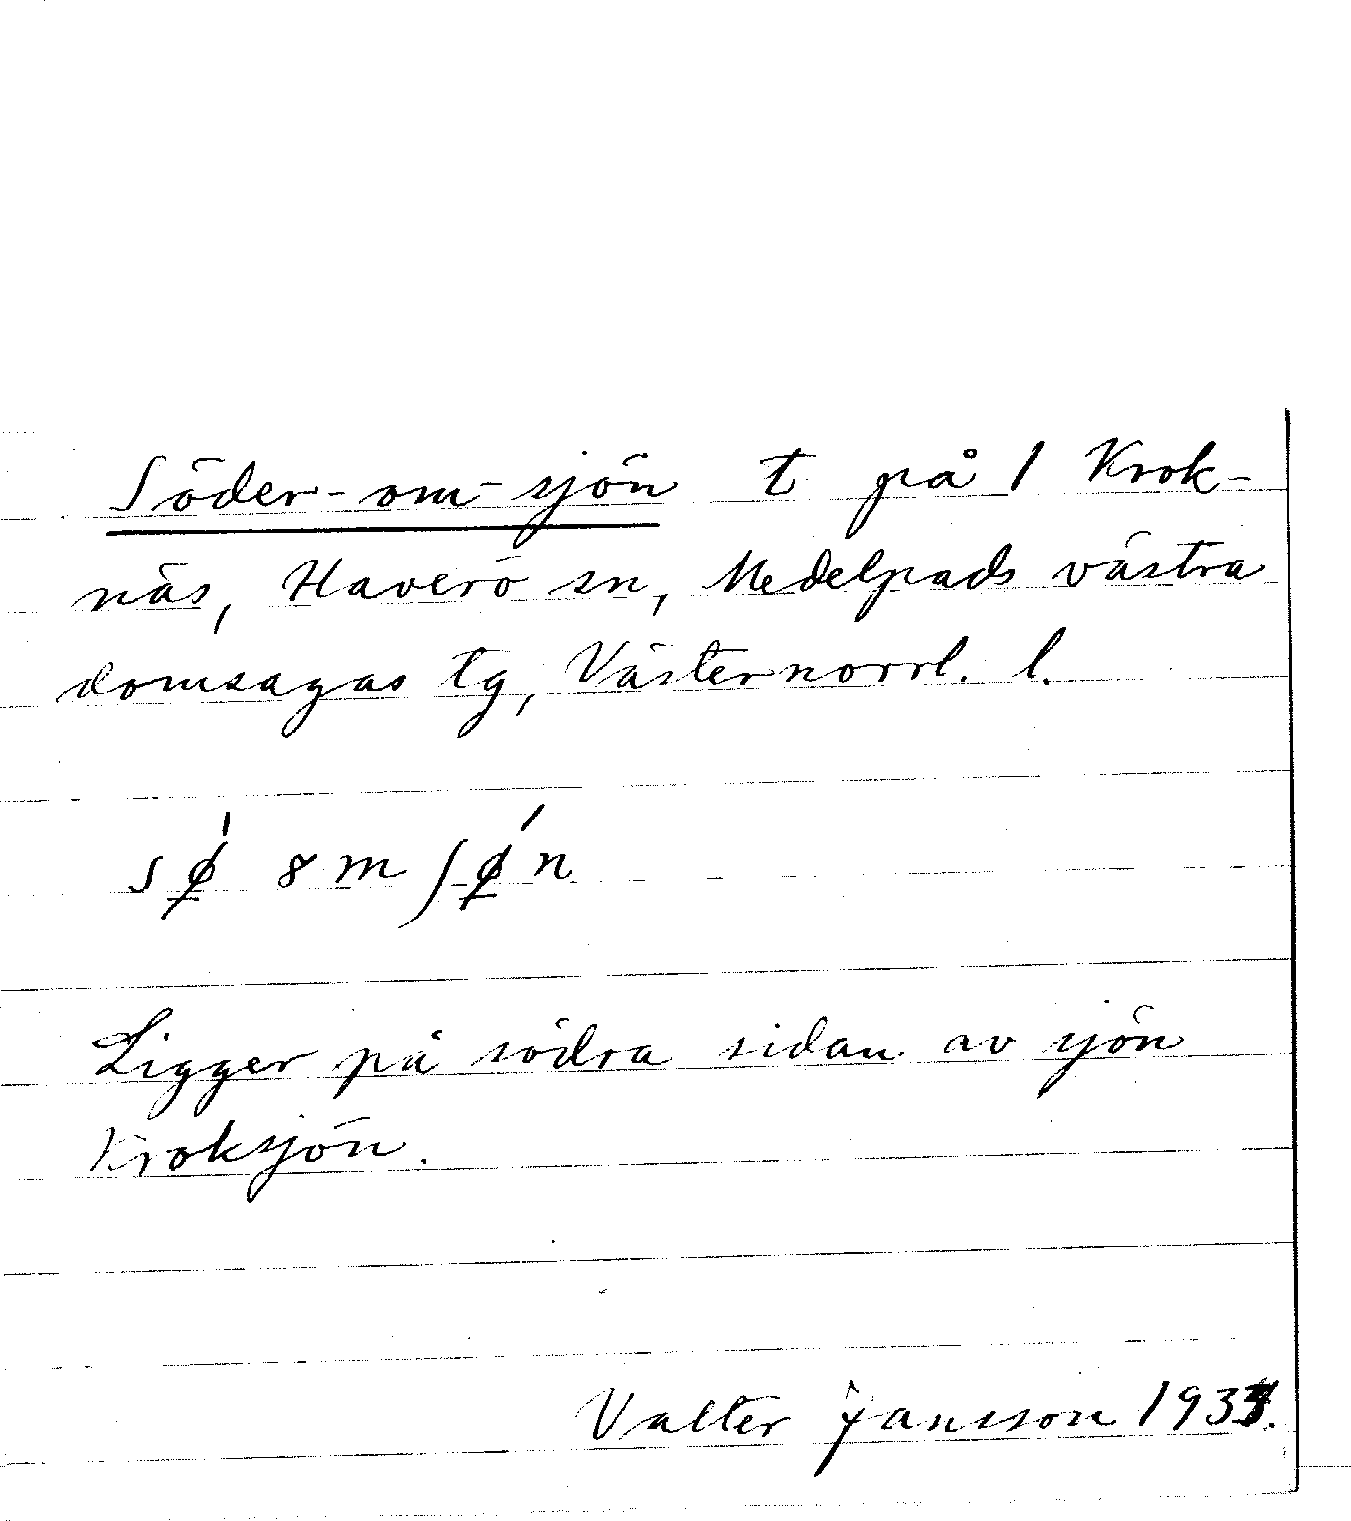 Söder-om-sjön t på 1 Krok-
näs, Haverö sn, Medelpads västra
domsagas tg, Västernorrl. l.
sǿ̲ 8m ʃǿ̲n
Ligger på södra sidan av sjön
Kroksjön.
Valter Jansson